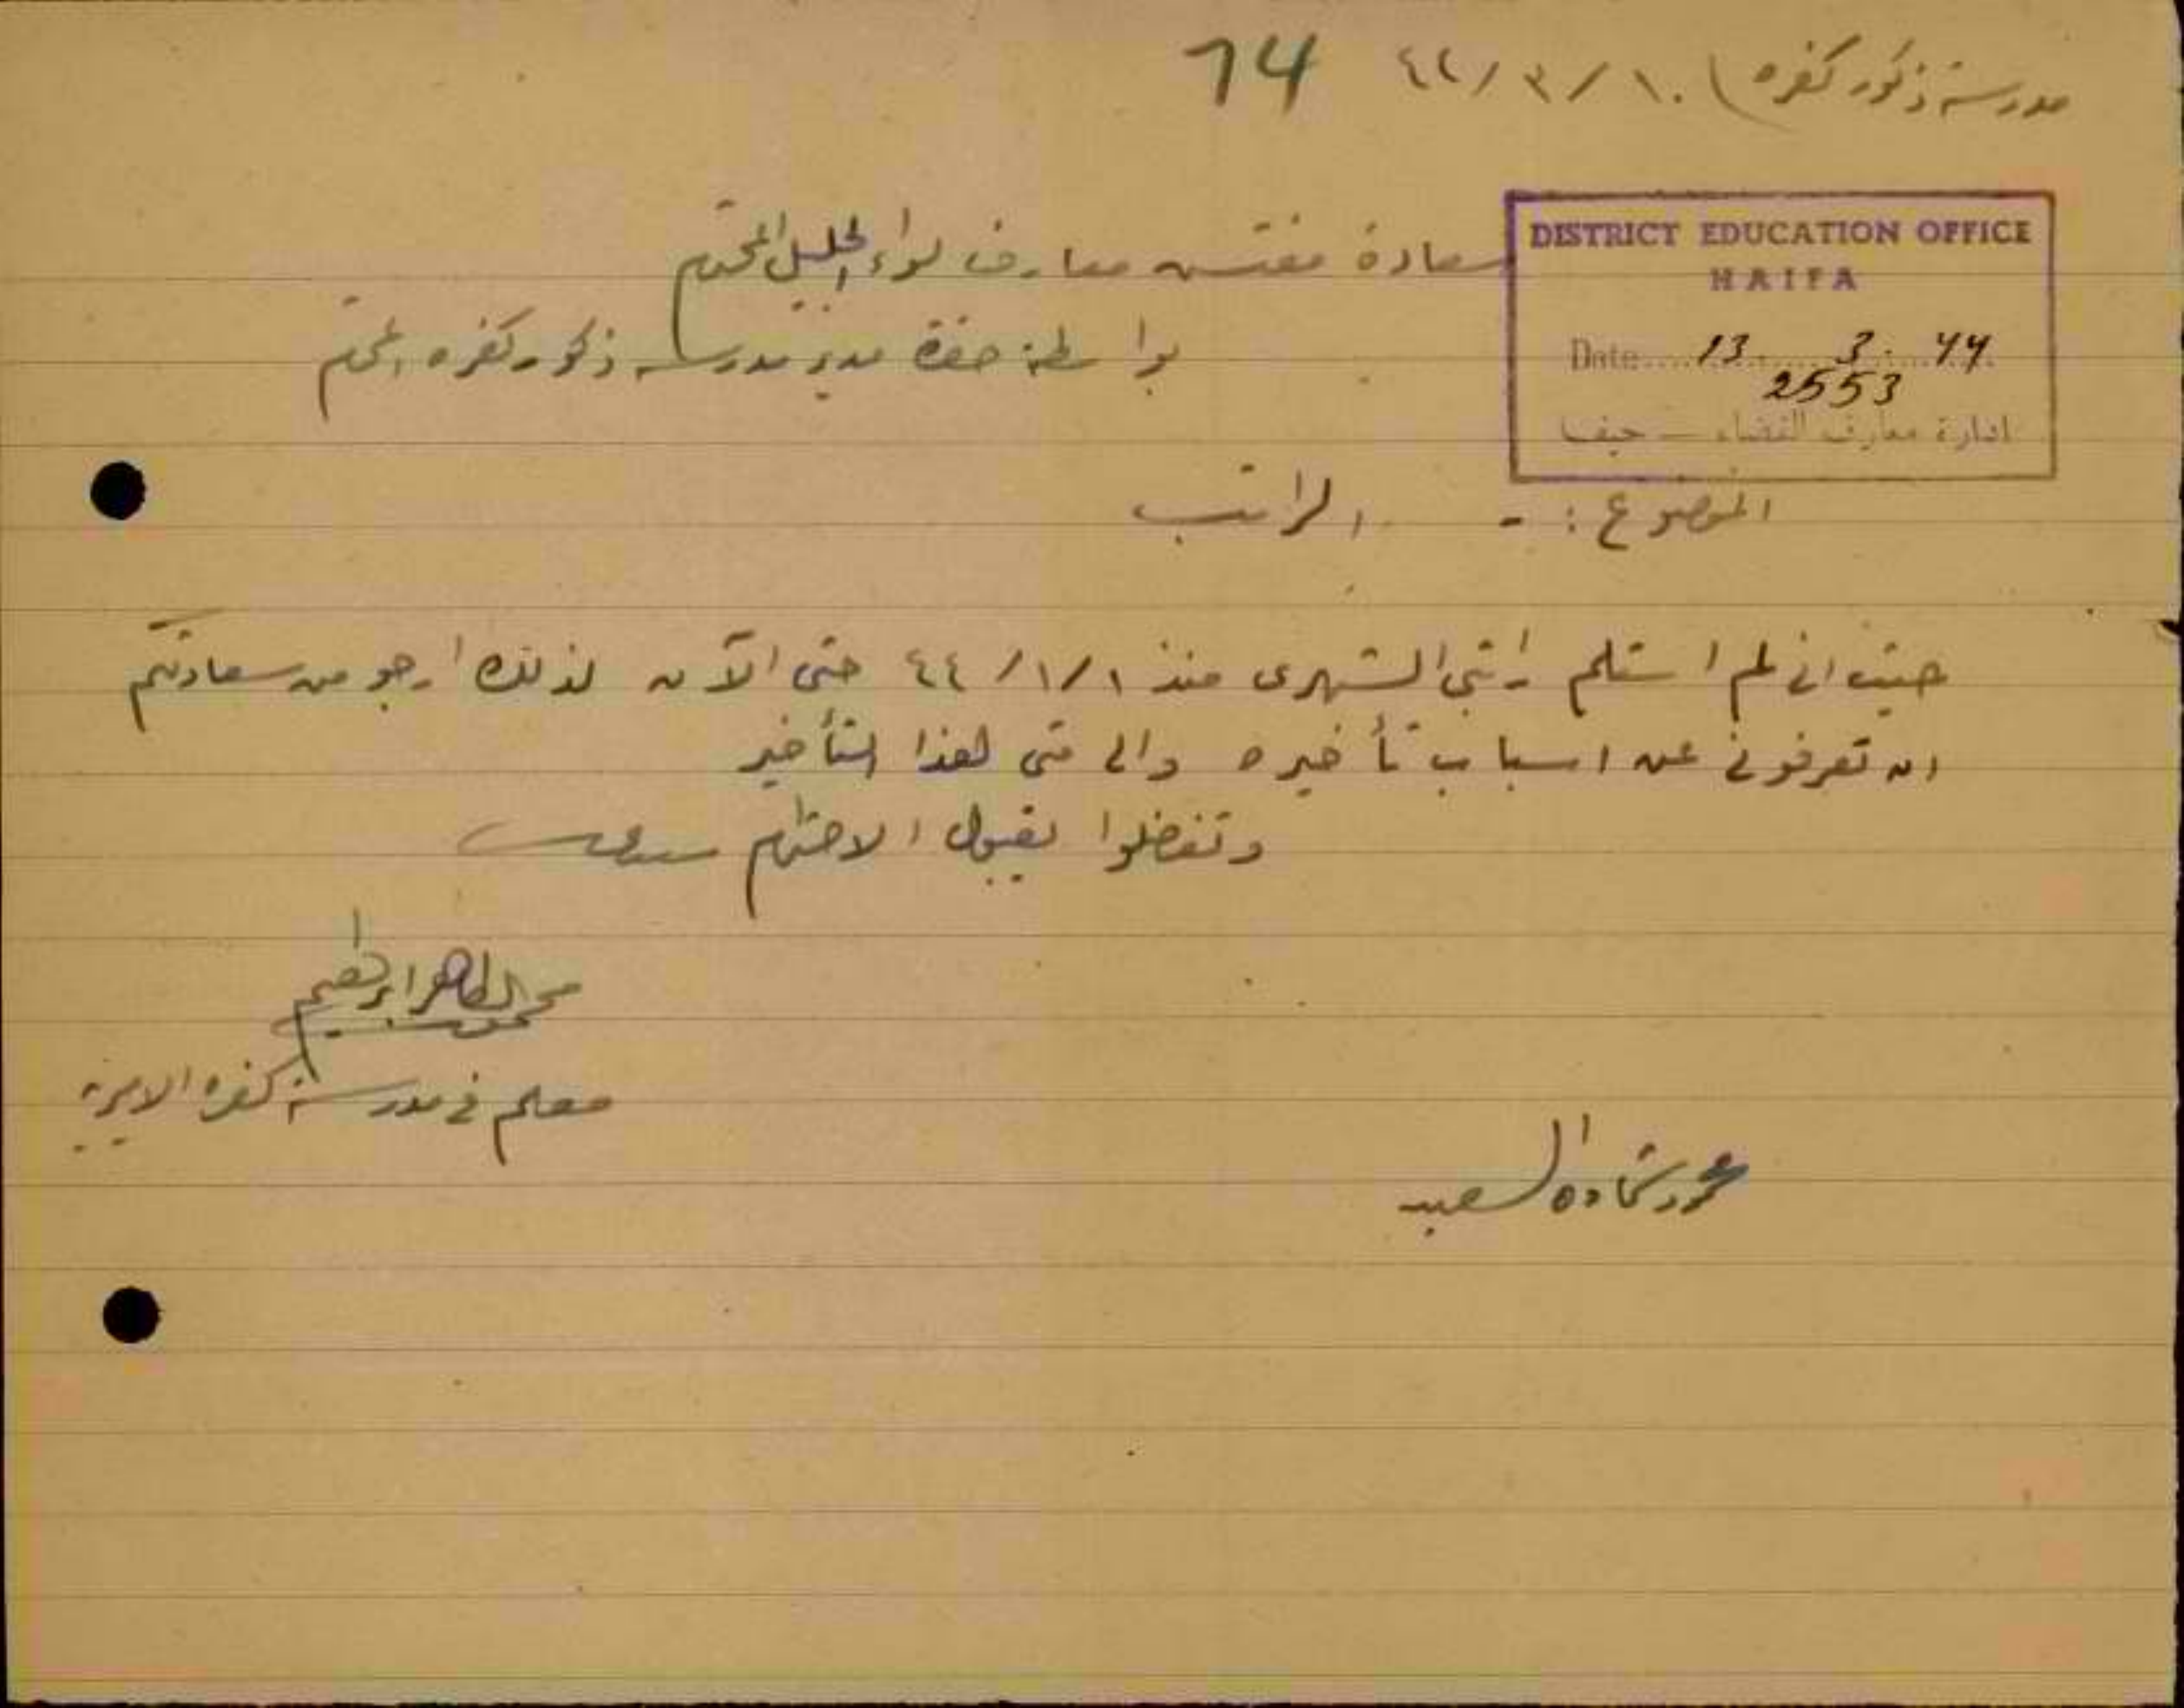 مدرسة ذكور كفره) ١٠/٣/٤٤ 74
DISTRICT EDUCATION OFFICE
HAIFA
Date.... 13. 3. 44
2553
ادارة معارف القضاء – حيفا
سعادة مفتش معارف لواء الجليل المحترم
بواسطة حضرة مدير مدرسة ذكور كفره المحترم
الموضوع :- الراتب
حيث اني لم استلم راتبي الشهري منذ ١/١/٤٤ حتى الآن لذلك ارجو من سعادتكم
ان تعرفوني عن اسباب تأخيره والى متى لهذا التأخير
وتفضلوا بقبول الاحترام سيدي
محمد الطاهر ابراهيم
معلم في مدرسة كفره الاميرية
شحاده السعيد